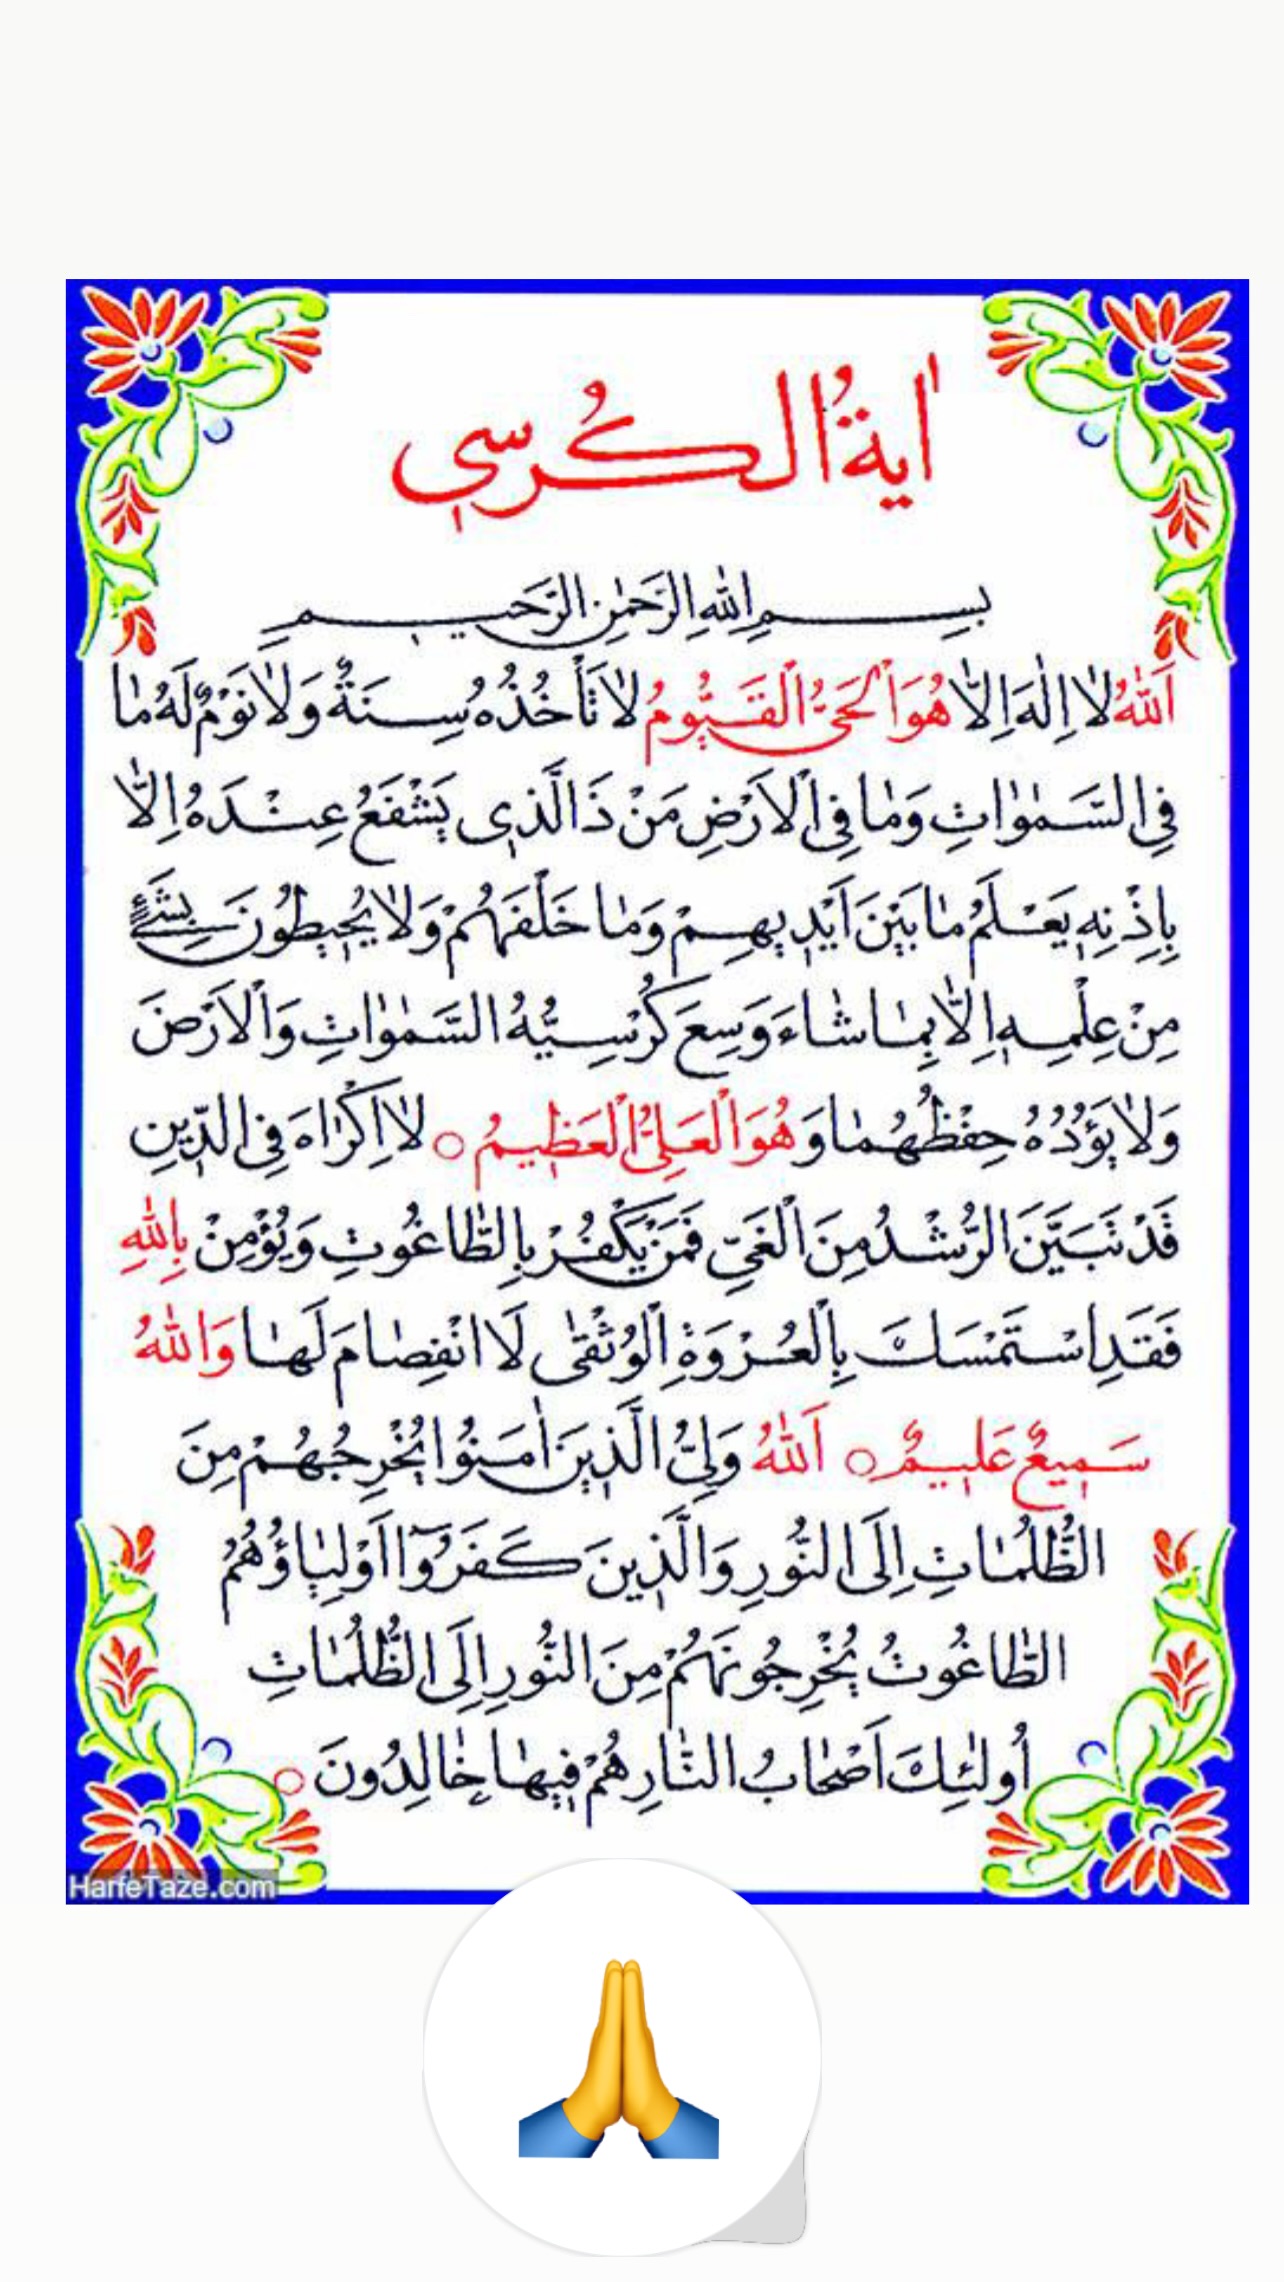 اٰيةُ الكُرسي
بِسْمِ اللهِ الرَّحْمٰنِ الرَّحيمِ
اَللهُ لاٰ اِلٰهَ اِلاّٰ هُوَ اَلْحَىُّ اَلْقَيُّومُ لاٰ تَأْخُذُهُ سِنَةٌ وَلاٰ نَوْمٌ لَهُ مٰا
فِى السَّمٰوٰاتِ وَمٰا فِى اْلاَرْضِ مَنْ ذَا الَّذى يَشْفَعُ عِنْدَهُ اِلاّٰ
بِاِذْنِهِ يَعْلَمُ مٰا بَيْنَ اَيْديهِمْ وَمٰا خَلْفَهُمْ وَلاٰ يُحيطُونَ بِشَىْءٍ
مِنْ عِلْمِهِ اِلاّٰ بِمٰا شٰاءَ وَسِعَ كُرْسِيُّهُ السَّمٰوٰاتِ وَاْلاَرْضَ
وَلاٰ يَؤُدُهُ حِفْظُهُمٰا وَ هُوَ اَلْعَلِىُّ اَلْعَظيمُ ○ لاٰ اِكْرٰاهَ فِى الدّينِ
قَدْ تَبَيَّنَ الرُّشْدُ مِنَ اَلْغَىِّ فَمَنْ يَكْفُرْ بِالطّٰاغُوتِ وَيُؤْمِنْ بِاللهِ
فَقَدِ اسْتَمْسَكَ بِالْعُرْوَةِ اَلْوُثْقىٰ لَا انْفِصٰامَ لَهٰا وَاللهُ
سَميعٌ عَليمٌ ○ اَللهُ وَلِىُّ الَّذينَ اٰمَنُوا يُخْرِجُهُمْ مِنَ
الظُّلُمٰاتِ اِلَى النُّورِ وَالَّذينَ كَفَرُوٓا اَوْلِيٰاؤُهُمُ
الطّٰاغُوتُ يُخْرِجُونَهُمْ مِنَ النُّورِ اِلَى الظُّلُمٰاتِ
اُولٰئِكَ اَصْحٰابُ النّٰارِ هُمْ فيهٰا خٰالِدُونَ ○
HarfeTaze.com